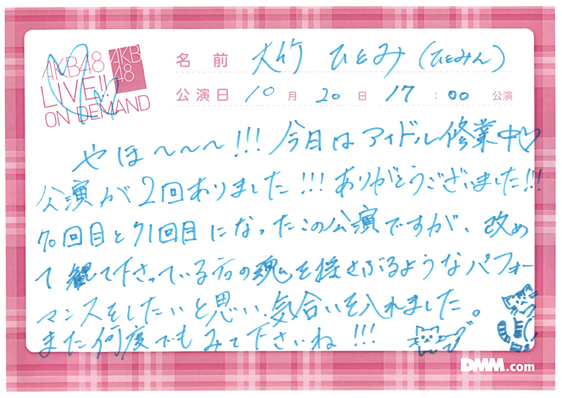 AKB48
LIVE!!
ON DEMAND
AKB
48
名前 大竹 ひとみ (ひとみん)
公演日 10月 20日 17:00 公演
やほ〜〜〜!!! 今日はアイドル修業中♡
公演が2回ありました!!! ありがとうございました!!!
70回目と71回目になったこの公演ですが、改め
て観て下さっている方の魂を揺さぶるようなパフォー
マンスをしたいと思い、気合いを入れました。
また何度でもみて下さいね!!!
DMM.com